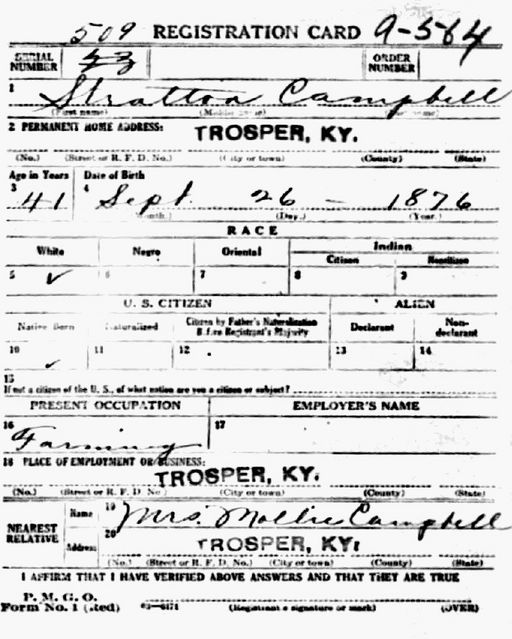 509 REGISTRATION CARD A-564
SERIAL NUMBER 53 ORDER NUMBER
1 Stratton Campbell
(First name) (Middle name) name)
2 PERMANENT HOME ADDRESS: TROSPER, KY.
(No.) (Street or R. F. D. No.) (City or town) (County) (State)
Age in Years Date of Birth
3 41 4 Sept. 26 - 1876
(Month.) (Day.) (Year.)
RACE
White Negro Oriental Indian
Citizen Noncitizen
5 ✓ 6 7 8 9
U. S. CITIZEN ALIEN
Native Born Naturalized Citizen by Father's Naturalization Before Registrant's Majority Declarant Non-declarant
10 ✓ 11 12 13 14
15
If not a citizen of the U. S., of what nation are you a citizen or subject?
PRESENT OCCUPATION EMPLOYER'S NAME
16 Farming 17
18 PLACE OF EMPLOYMENT OR BUSINESS:
TROSPER, KY.
(No.) (Street or R. F. D. No.) (City or town) (County) (State)
NEAREST RELATIVE Name 19 Mrs. Mollie Campbell
Address 20 TROSPER, KY.
(No.) (Street or R. F. D. No.) (City or town) (County) (State)
I AFFIRM THAT I HAVE VERIFIED ABOVE ANSWERS AND THAT THEY ARE TRUE
P. M. G. O.
Form No. 1 (Red) 03-6171 (Registrant's signature or mark) (OVER)